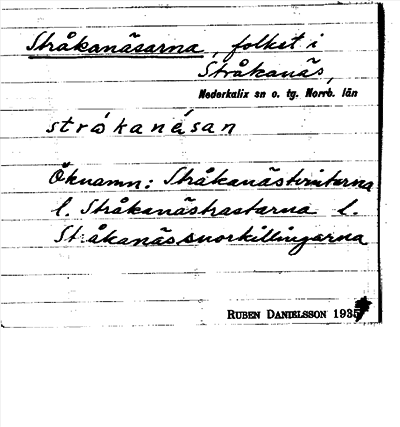 Stråkanäsarna, folket i
Stråkanäs,
Nederkalix sn o. tg. Norrb. län
stråkanésan
Öknamn: Stråkanästwintarna
l. Stråkanästrastarna l.
Stråkanässnorkillingarna
RUBEN DANIELSSON 1935